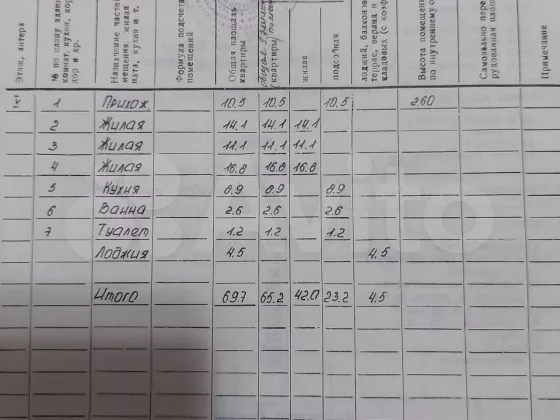 Этаж, литера
№ по плану здания
комнат, кухни, кор
дор и др.
Назначение частей
мещения: жилая
ната, кухня и т.
Формула подсчета
помещений
Общая площадь
квартиры
квартиры
жилая
подсобная
лоджий, балконов
террас, веранд и
кладовых (с коэф
Высота помещений
по внутреннему о
Самовольно пере
рудованная площ
Примечание
1 Прихож 10.5 10.5 10.5 260
2 Жилая 14.1 14.1 14.1
3 Жилая 11.1 11.1 11.1
4 Жилая 16.8 16.8 16.8
5 Кухня 8.9 8.9 8.9
6 Ванна 2.6 2.6 2.6
7 Туалет 1.2 1.2 1.2
Лоджия 4.5 4.5
Итого 69.7 65.2 42.0 23.2 4.5
Avito